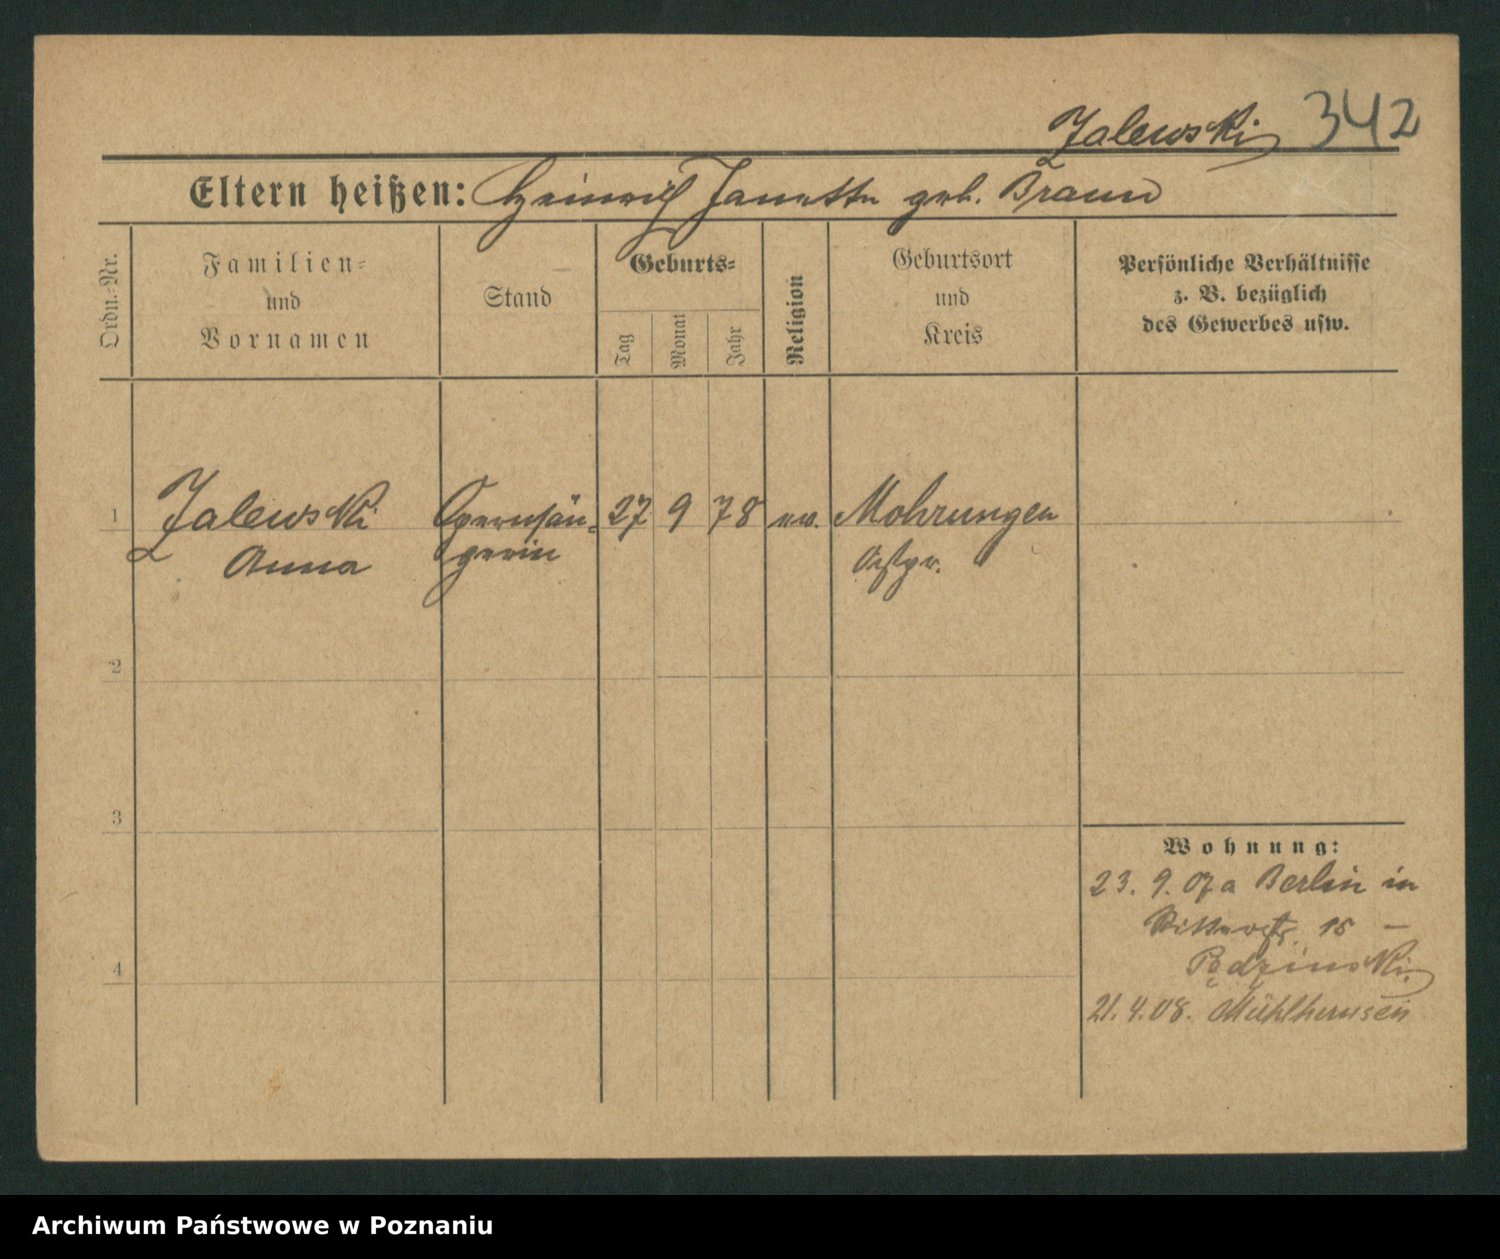 Zalewski 342
Eltern heißen: Heinrich Janette geb. Braun
Ordn.-Nr.
Familien-
und
Vornamen
Stand
Geburts-
Tag
Monat
Jahr
Religion
Geburtsort
und
Kreis
Persönliche Verhältnisse
z. B. bezüglich
des Gewerbes usw.
1 Zalewski Opernsän- 27 9 78 ev. Mohrungen
Anna gerin Ostpr.
2
3
Wohnung:
23. 9. 07 a Berlin in
Ritterstr. 15 –
4
21.4.08. Mühlhausen
Archiwum Państwowe w Poznaniu